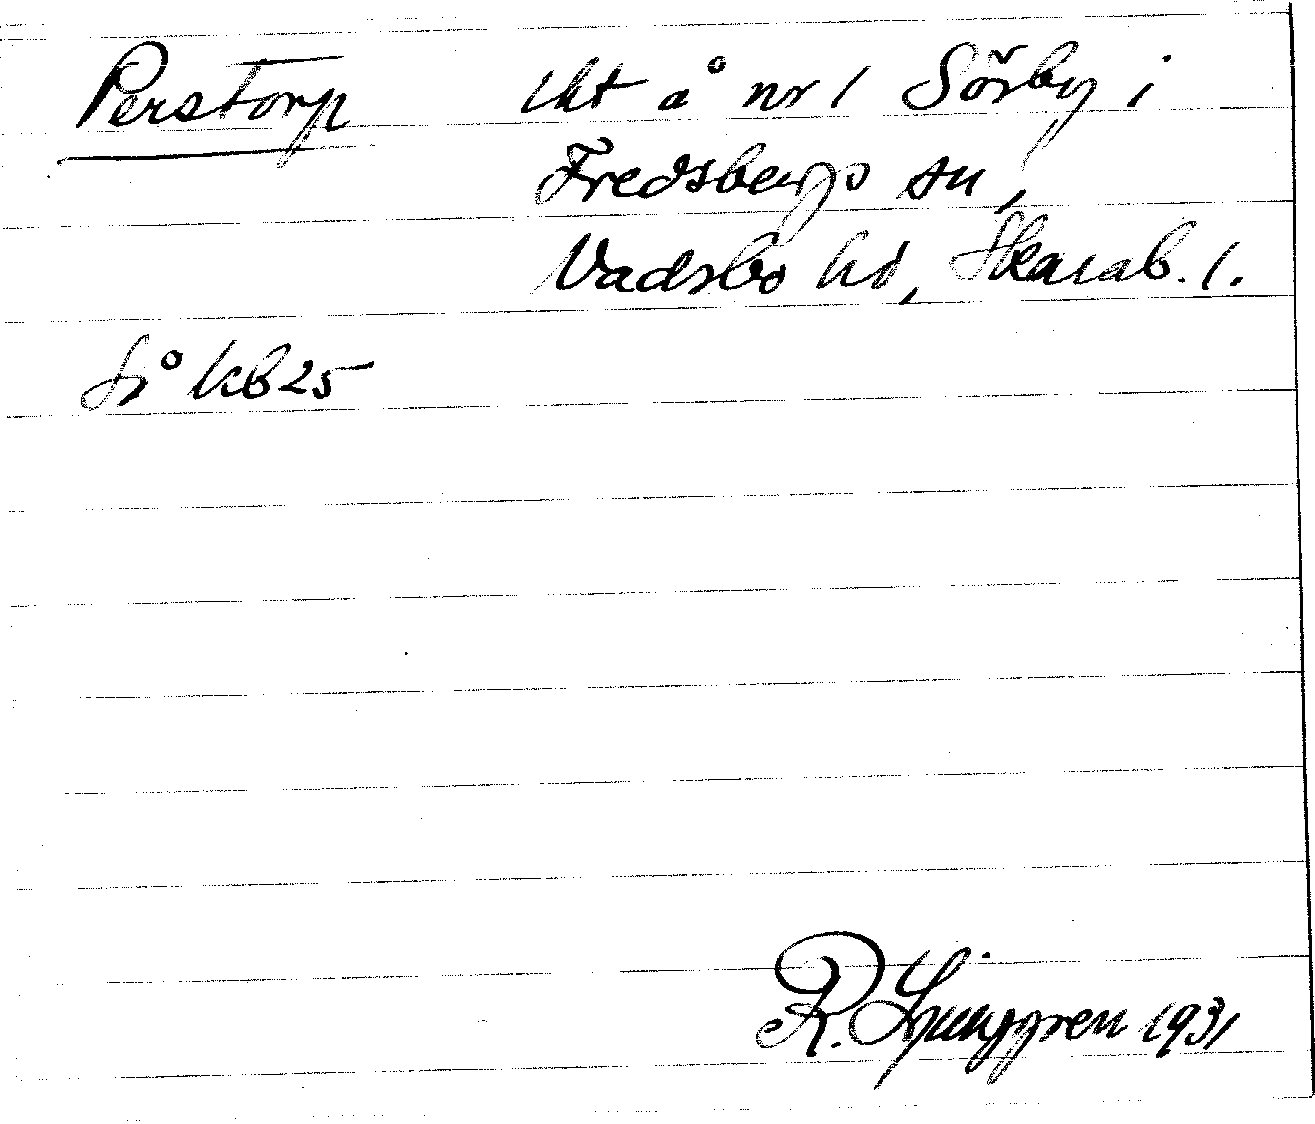 Perstorp lht å nr 1 Sörby i
Fredsbergs sn,
Vadsbo hd, Skarab. l.
så kb 25
R. Ljunggren 1931